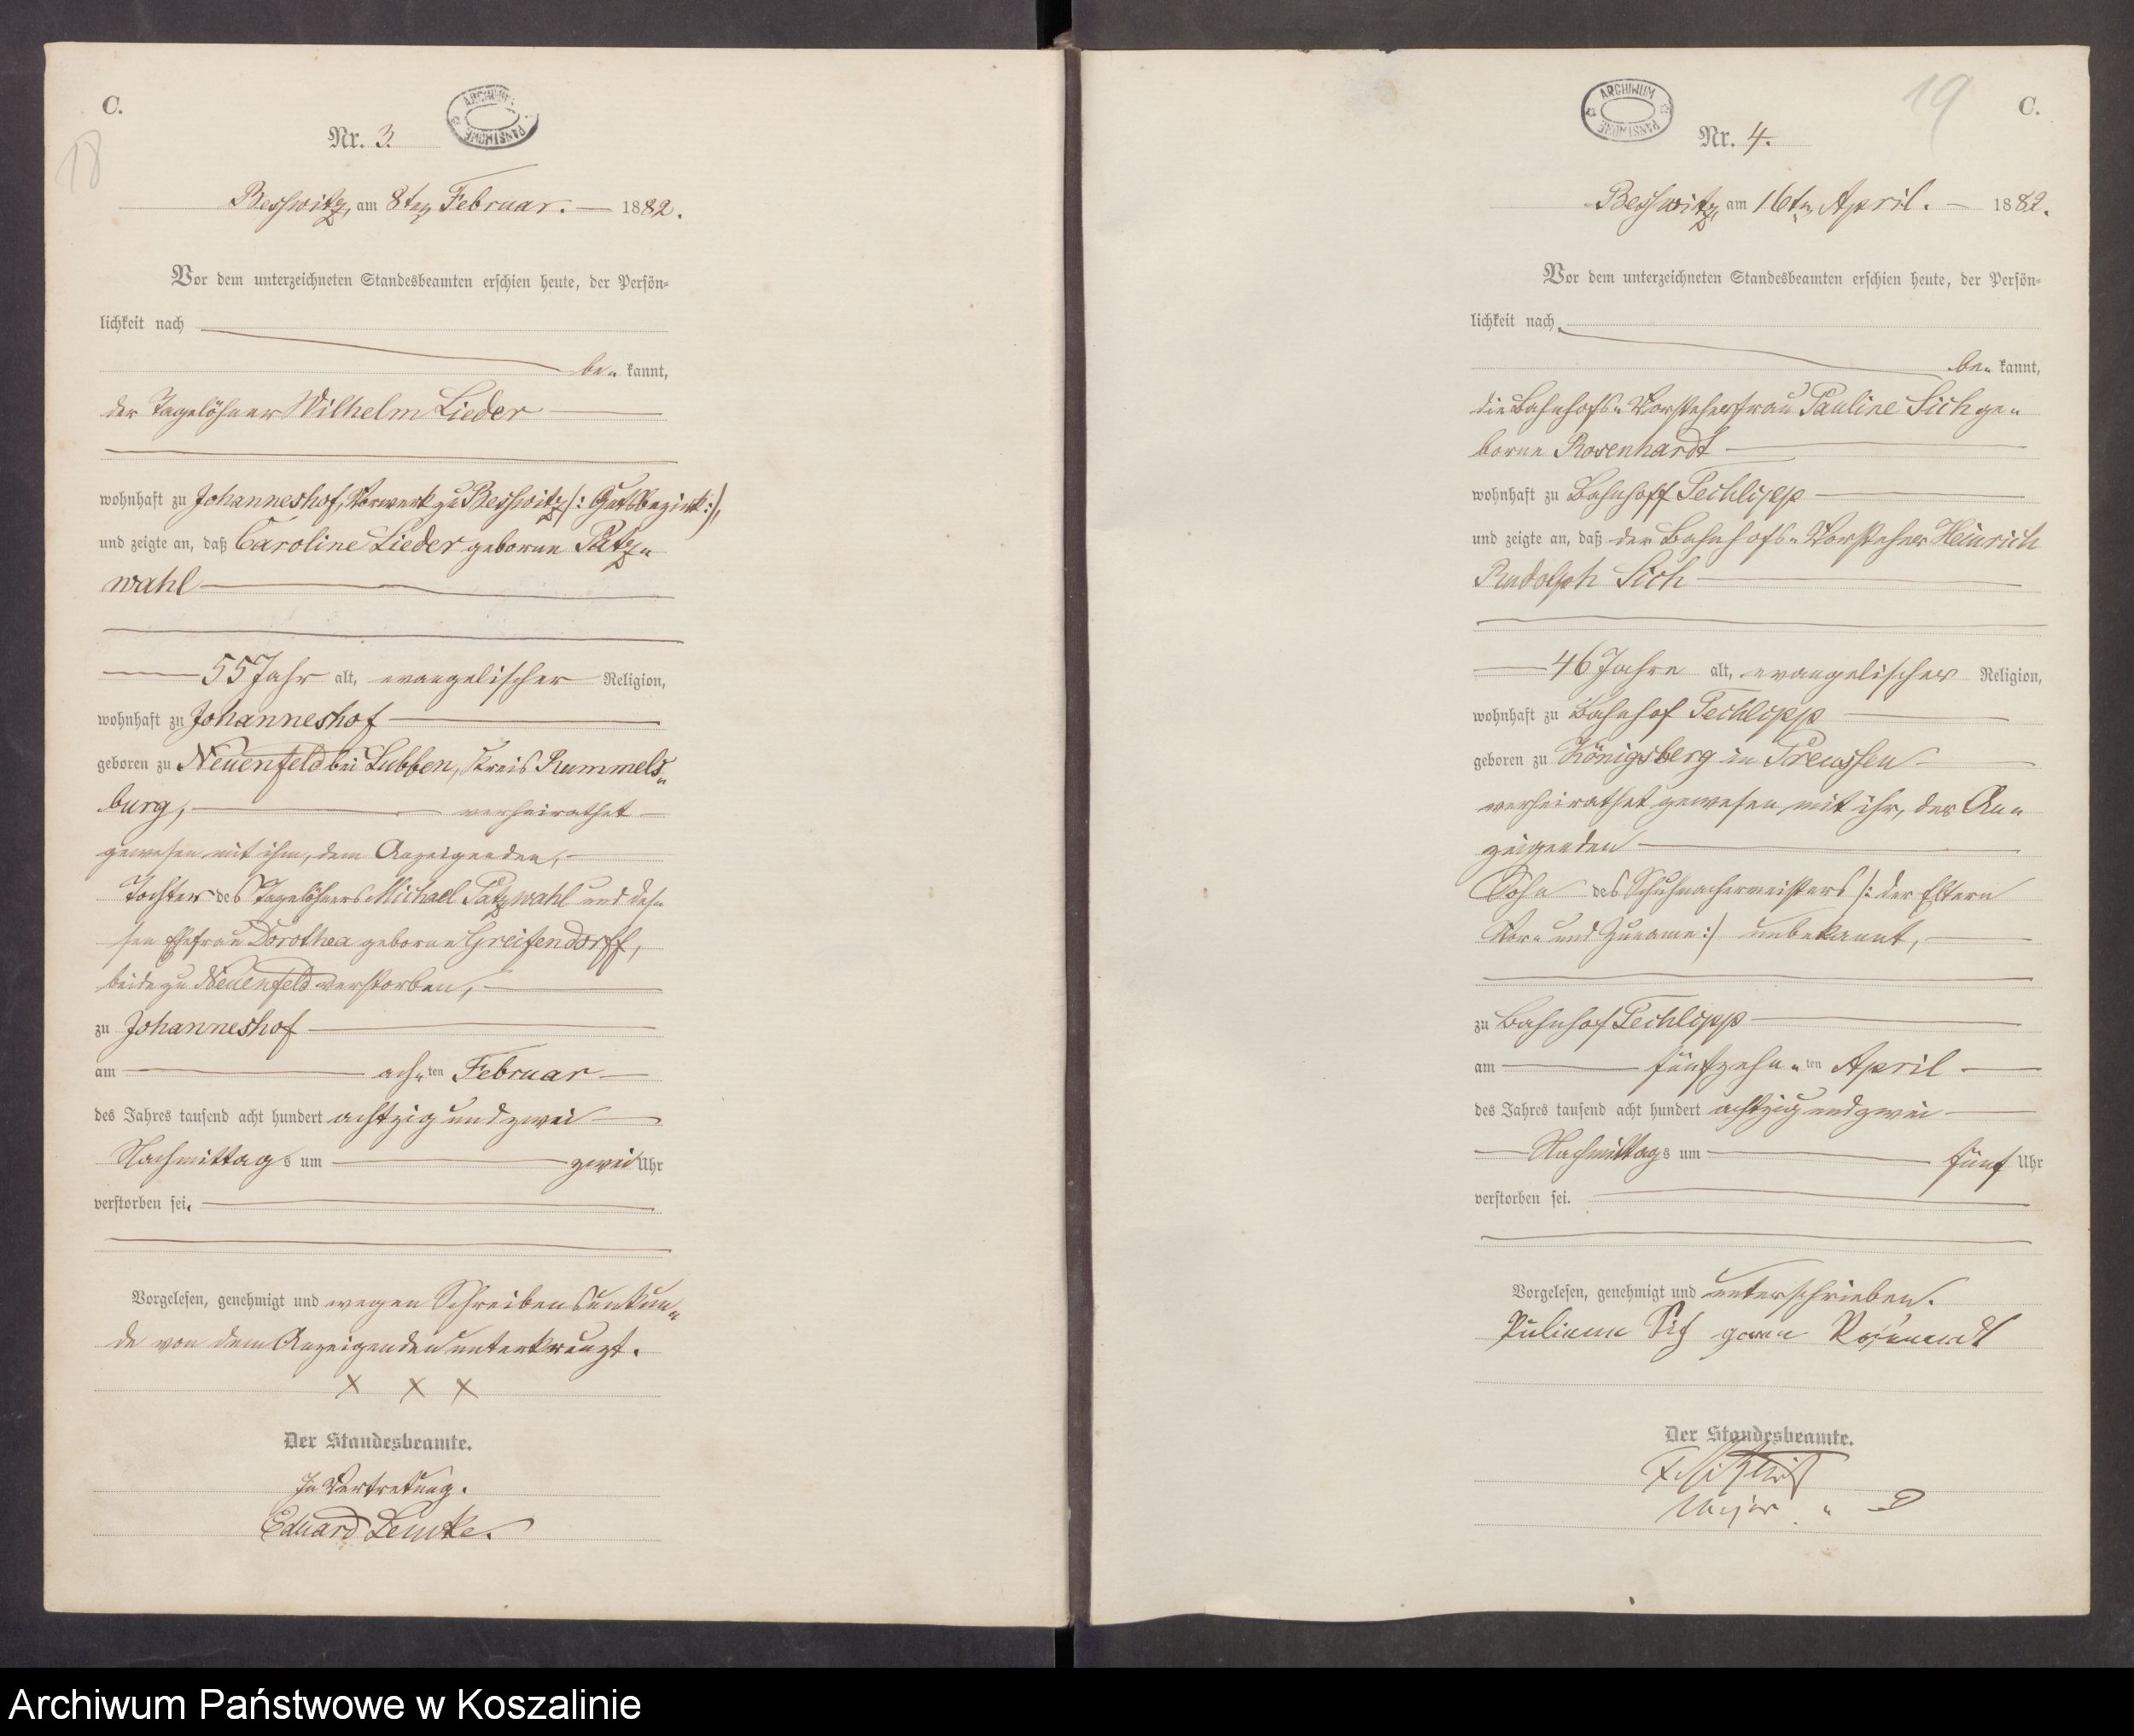 C.
18
ARCHIWUM PAŃSTWOWE
Nr. 3.
Besswitz, am 8ten Februar. 1882.
Vor dem unterzeichneten Standesbeamten erschien heute, der Persön-
lichkeit nach
be- kannt,
der Tagelöhner Wilhelm Lieder
wohnhaft zu Johanneshof, Vorwerk zu Besswitz /: Gutsbezirk :/,
und zeigte an, daß Caroline Lieder geborne Patz-
wahl
55 Jahr alt, evangelischer Religion,
wohnhaft zu Johanneshof
geboren zu Neuenfeld bei Lubben, Kreis Rummels-
burg, verheirathet
gewesen mit ihm, dem Anzeigenden,
Tochter des Tagelöhners Michael Patzwahl und des-
sen Ehefrau Dorothea geborne Greifendorff,
beide zu Neuenfeld verstorben,
zu Johanneshof
am ach-ten Februar
des Jahres tausend acht hundert achtzig und zwei
Nachmittags um zwei Uhr
verstorben sei.
Vorgelesen, genehmigt und wegen Schreibensunkun-
de von dem Anzeigenden unterkreuzt.
x x x
Der Standesbeamte.
In Vertretung.
Eduard Lemke.
19
C.
ARCHIWUM PAŃSTWOWE
Nr. 4.
Besswitz, am 16ten April. 1882.
Vor dem unterzeichneten Standesbeamten erschien heute, der Persön-
lichkeit nach
be- kannt,
die Bahnhofs-Vorsteherfrau Pauline Sich ge-
borne Rosenhardt
wohnhaft zu Bahnhoff Techlipp
und zeigte an, daß der Bahnhofs-Vorsteher Heinrich
Rudolph Sich
46 Jahre alt, evangelischer Religion,
wohnhaft zu Bahnhof Techlipp
geboren zu Königsberg in Preussen
verheirathet gewesen mit ihr, der An-
zeigenden
Sohn des Schuhmachermeisters /: der Eltern
Vor- und Zuname :/ unbekannt,
zu Bahnhof Techlipp
am fünfzehn-ten April
des Jahres tausend acht hundert achtzig und zwei
Nachmittags um fünf Uhr
verstorben sei.
Vorgelesen, genehmigt und unterschrieben.
Sich
Der Standesbeamte.
Major
Archiwum Państwowe w Koszalinie